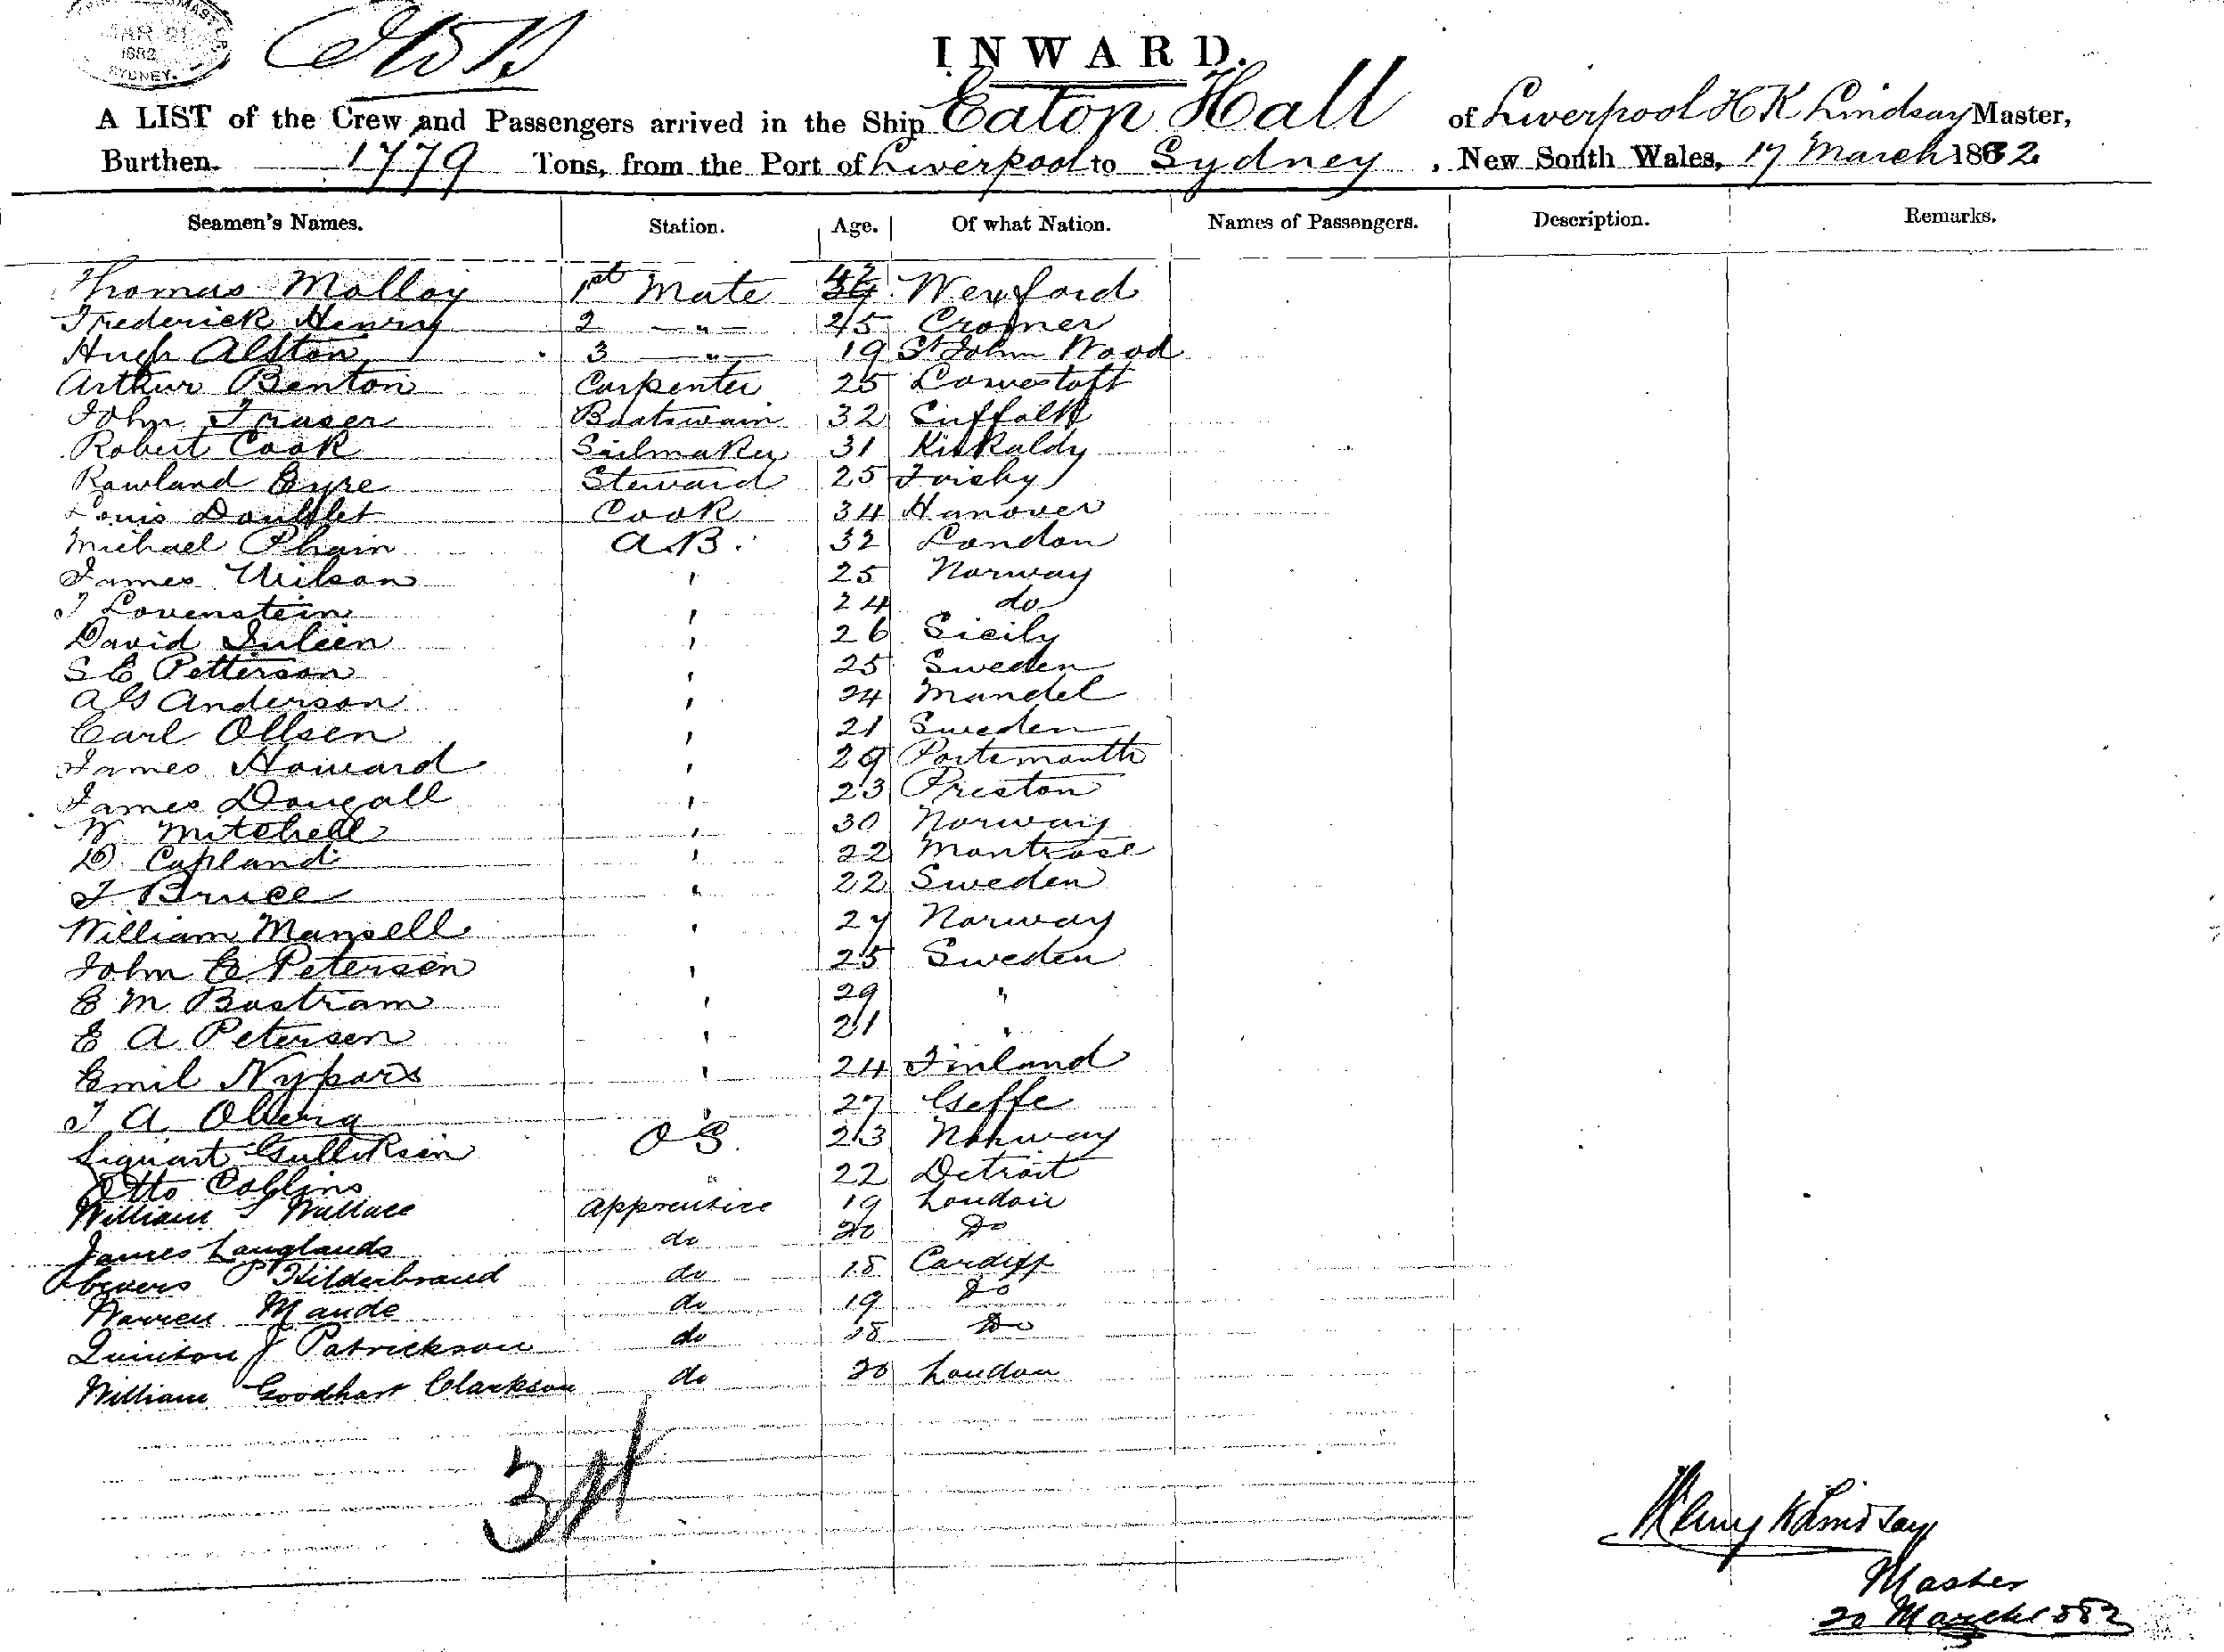 MAR 21
1882
SYDNEY.
INWARD.
A LIST of the Crew and Passengers arrived in the Ship Eaton Hall of Liverpool H K Lindsay Master,
Burthen. 1779 Tons, from the Port of Liverpool to Sydney, New South Wales, 17 March 1882
Seamen's Names. Station. Age. Of what Nation. Names of Passengers. Description. Remarks.
Thomas Molloy 1st Mate 42 Wexford
Frederick Henry 2 " 25 Cromer
Hugh Alston 3 " 19 St John Wood
Arthur Benton Carpenter 25 Lowestoft
John Fraser Boatswain 32 Suffolk
Robert Cook Sailmaker 31 Kirkaldy
Rowland Eyre Steward 25
Louis Cook 34 Hanover
Michael Phain A.B. 32 London
James Wilson ' 25 Norway
J Lovenstein ' 24 do
David Julien ' 26 Sicily
S E Petterson ' 25 Sweden
A G Anderson ' 24 Mandel
Carl Ollsen ' 21 Sweden
James Howard ' 29 Portsmouth
James Dougall ' 23 Preston
W Mitchell ' 30 Norway
D. Copland ' 22 Montrose
J Bruce " 22 Sweden
William Mansell ' 27 Norway
John E Petersen ' 25 Sweden
E M Bostram ' 29 "
E A Petersen ' 21 "
Emil Nypars ' 24 Finland
J A Oberg ' 27 Geffe
Siguart Gulliksen O S. 23 Norway
Otto Collins " 22 Detroit
William S Wallace apprentice 19 London
James Langlands do 20 Do
P Hilderbrand do 18 Cardiff
Warren Maude do 19 Do
Quinton J Patrickson do 18 Do
William Goodhart Clarkson do 20 London
34
Henry K Lindsay
Master
20 March 1882